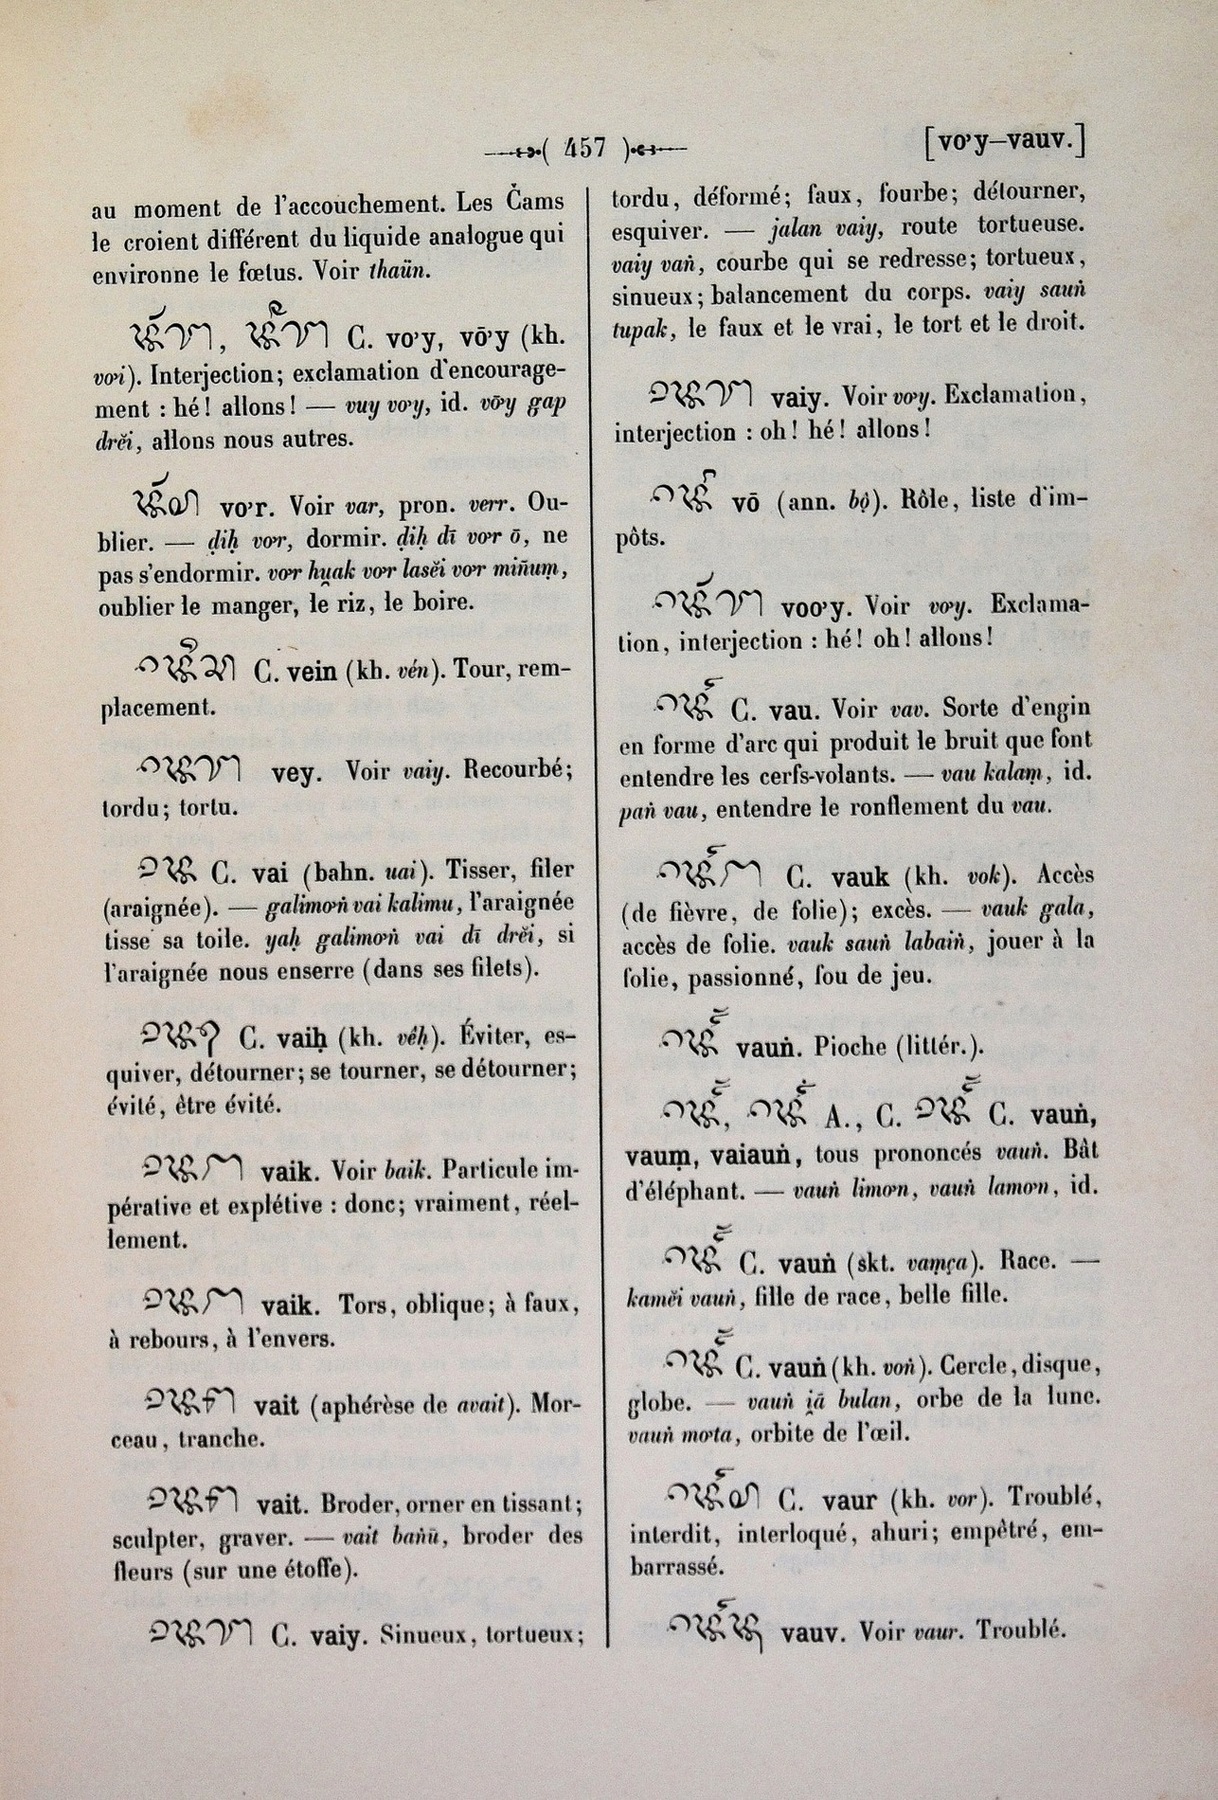 ( 457 )
[vơ'y—vauv.]
au moment de l'accouchement. Les Čams
le croient différent du liquide analogue qui
environne le fœtus. Voir thaün.
C. vơy, vơ̄y (kh.
vơi). Interjection; exclamation d'encourage-
ment : hé! allons! — vuy vơy, id. vơ̄y gap
drĕi, allons nous autres.
vơr. Voir var, pron. verr. Ou-
blier. — ḍiḥ vơr, dormir. ḍiḥ dī vơr ō, ne
pas s'endormir. vơr hu̯ak vơr lasĕi vơr miñuṃ,
oublier le manger, le riz, le boire.
C. vein (kh. vén). Tour, rem-
placement.
vey. Voir vaiy. Recourbé;
tordu; tortu.
C. vai (bahn. uai). Tisser, filer
(araignée). — galimơṅ vai kalimu, l'araignée
tisse sa toile. yaḥ galimơṅ vai dī drĕi, si
l'araignée nous enserre (dans ses filets).
C. vaiḥ (kh. vêḥ). Éviter, es-
quiver, détourner; se tourner, se détourner;
évité, être évité.
vaik. Voir baik. Particule im-
pérative et explétive : donc; vraiment, réel-
lement.
vaik. Tors, oblique; à faux,
à rebours, à l'envers.
vait (aphérèse de avait). Mor-
ceau, tranche.
vait. Broder, orner en tissant;
sculpter, graver. — vait baṅū, broder des
fleurs (sur une étoffe).
C. vaiy. Sinueux, tortueux;
tordu, déformé; faux, fourbe; détourner,
esquiver. — jalan vaiy, route tortueuse.
vaiy vaṅ, courbe qui se redresse; tortueux,
sinueux; balancement du corps. vaiy sauṅ
tupak, le faux et le vrai, le tort et le droit.
vaiy. Voir vơy. Exclamation,
interjection : oh! hé! allons!
vō (ann. bộ). Rôle, liste d'im-
pôts.
voơy. Voir vơy. Exclama-
tion, interjection : hé! oh! allons!
C. vau. Voir vav. Sorte d'engin
en forme d'arc qui produit le bruit que font
entendre les cerfs-volants. — vau kalaṃ, id.
paṅ vau, entendre le ronflement du vau.
C. vauk (kh. vok). Accès
(de fièvre, de folie); excès. — vauk gala,
accès de folie. vauk sauṅ labaiṅ, jouer à la
folie, passionné, fou de jeu.
vauṅ. Pioche (littér.).
A., C. C. vauṅ,
vauṃ, vaiauṅ, tous prononcés vauṅ. Bât
d'éléphant. — vauṅ limơn, vauṅ lamơn, id.
C. vauṅ (skt. vaṃça). Race. —
kamĕi vauṅ, fille de race, belle fille.
C. vauṅ (kh. voṅ). Cercle, disque,
globe. — vauṅ i̯ā bulan, orbe de la lune.
vauṅ mơta, orbite de l'œil.
C. vaur (kh. vor). Troublé,
interdit, interloqué, ahuri; empêtré, em-
barrassé.
vauv. Voir vaur. Troublé.